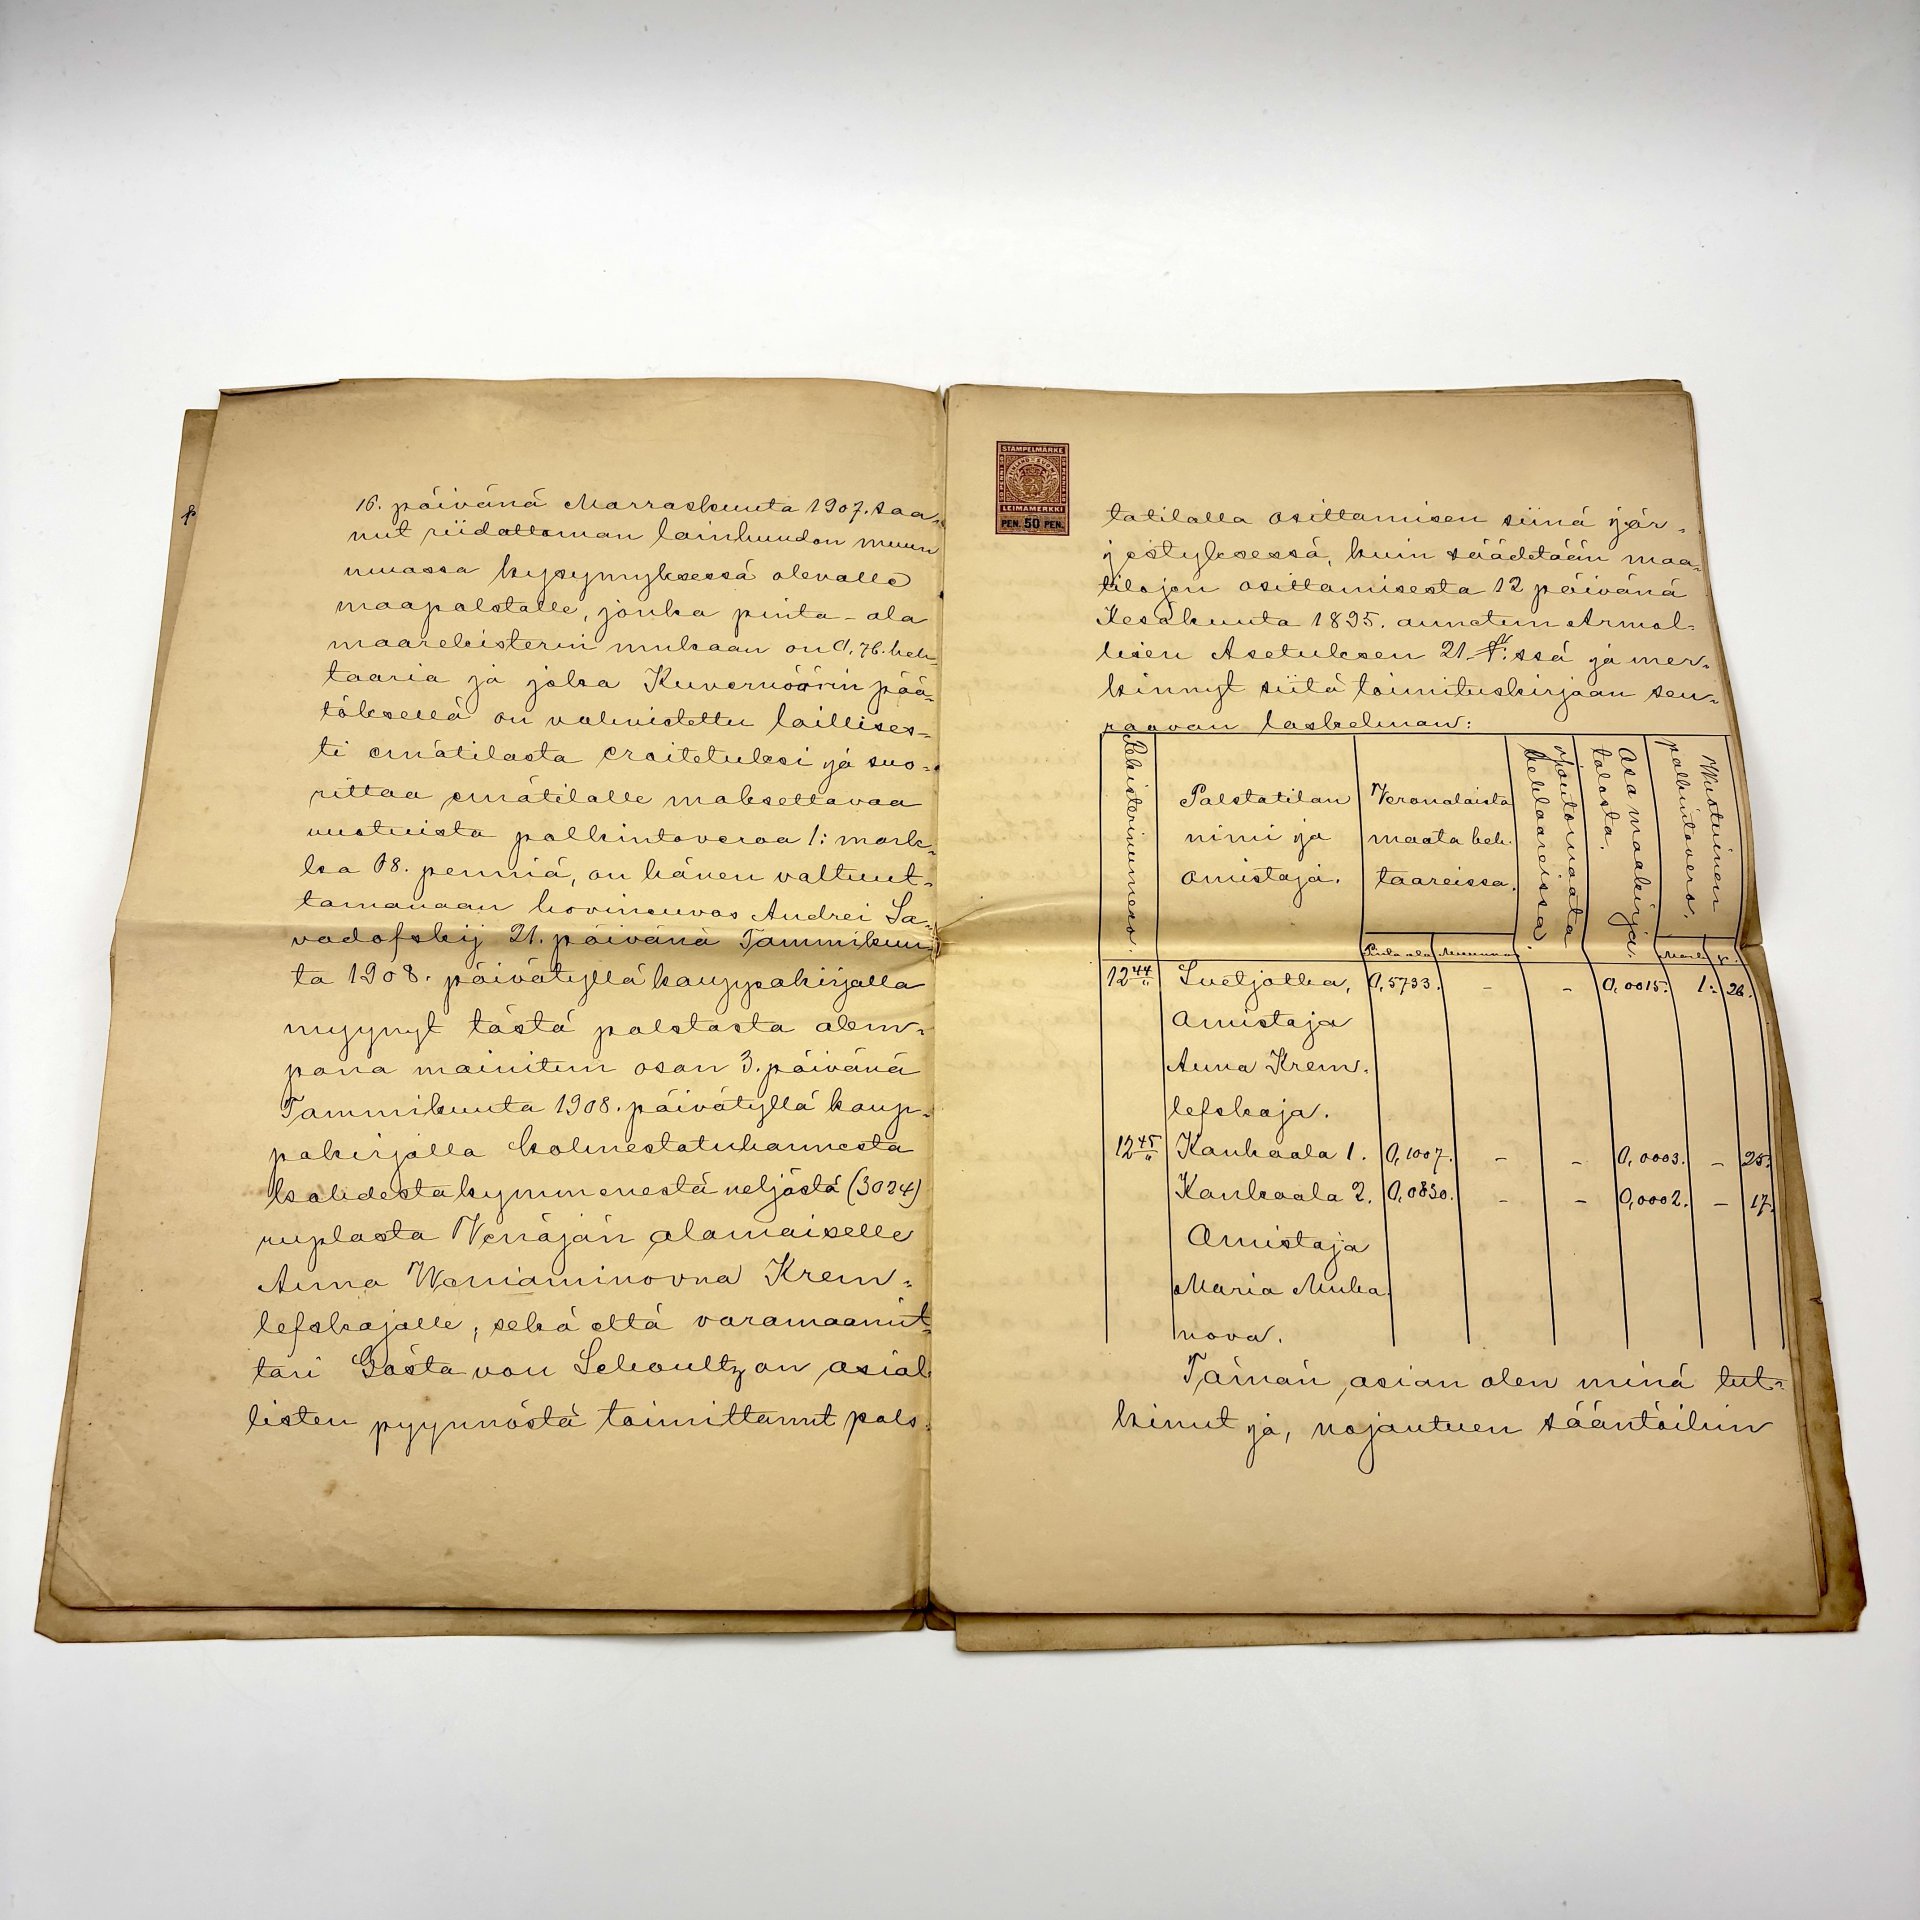 16. päivänä Marraskuuta 1907. saa=
nut riidattoman lainhuudon muun
muassa kysymyksessä olevalle
maapalstalle, jonka pinta-ala
maarekisterin mukaan on 0,76. heh=
taaria ja joka Kuvernöörin pää=
töksellä on vahvistettu laillises=
ti emätilasta eroitetuksi ja suo=
rittaa emätilalle maksettavaa
vuotuista palkintoveroa 1: mark=
ka 08. penniä, on hänen valtuut=
tamanaan hovineuvos Andrei Sa=
vadofskij 21. päivänä Tammikuu=
ta 1908. päivätyllä kauppakirjalla
myynyt tästä palstasta alem=
pana mainitun osan 3. päivänä
Tammikuuta 1908. päivätyllä kaup=
pakirjalla kolmestatuhannesta
kahdestakymmenestä neljästä (3024)
ruplasta Venäjän alamaiselle
Anna Weniaminovna Krem=
lefskajalle, sekä että varamaamit=
tari Gösta von Schoultz on asial=
listen pyynnöstä toimittanut pals=
STAMPELMÄRKE
LEIMAMERKKI
PEN. 50 PEN.
tatilalla osittamisen siinä jär=
jestyksessä, kuin säädetään maa=
tilojen osittamisesta 12 päivänä
Kesäkuuta 1895. annetun Armol=
lisen Asetuksen 21 §:ssä ja mer=
kinnyt siitä toimituskirjaan seu=
raavan laskelman:
Rekisterinumero.
Palstatilan
nimi ja
omistaja.
Veronalaista
maata heh.
taareissa.
Joutomaata
hehtaareissa.
Osa maakirja=
talosta.
Vuotuinen
palkintovero.
Pinta ala Muunnos Mark p.
12 44 Suetjotka, 0,5733. - - 0,0015. 1: 26.
Omistaja
Anna Krem=
lefskaja.
12 45 Kankaala 1. 0,1007. - - 0,0003. - 25.
Kankaala 2. 0,0830. - - 0,0002. - 17.
Omistaja
Maria Muha
nova.
Tämän asian olen minä tut=
kinut ja, nojautuen sääntöihin